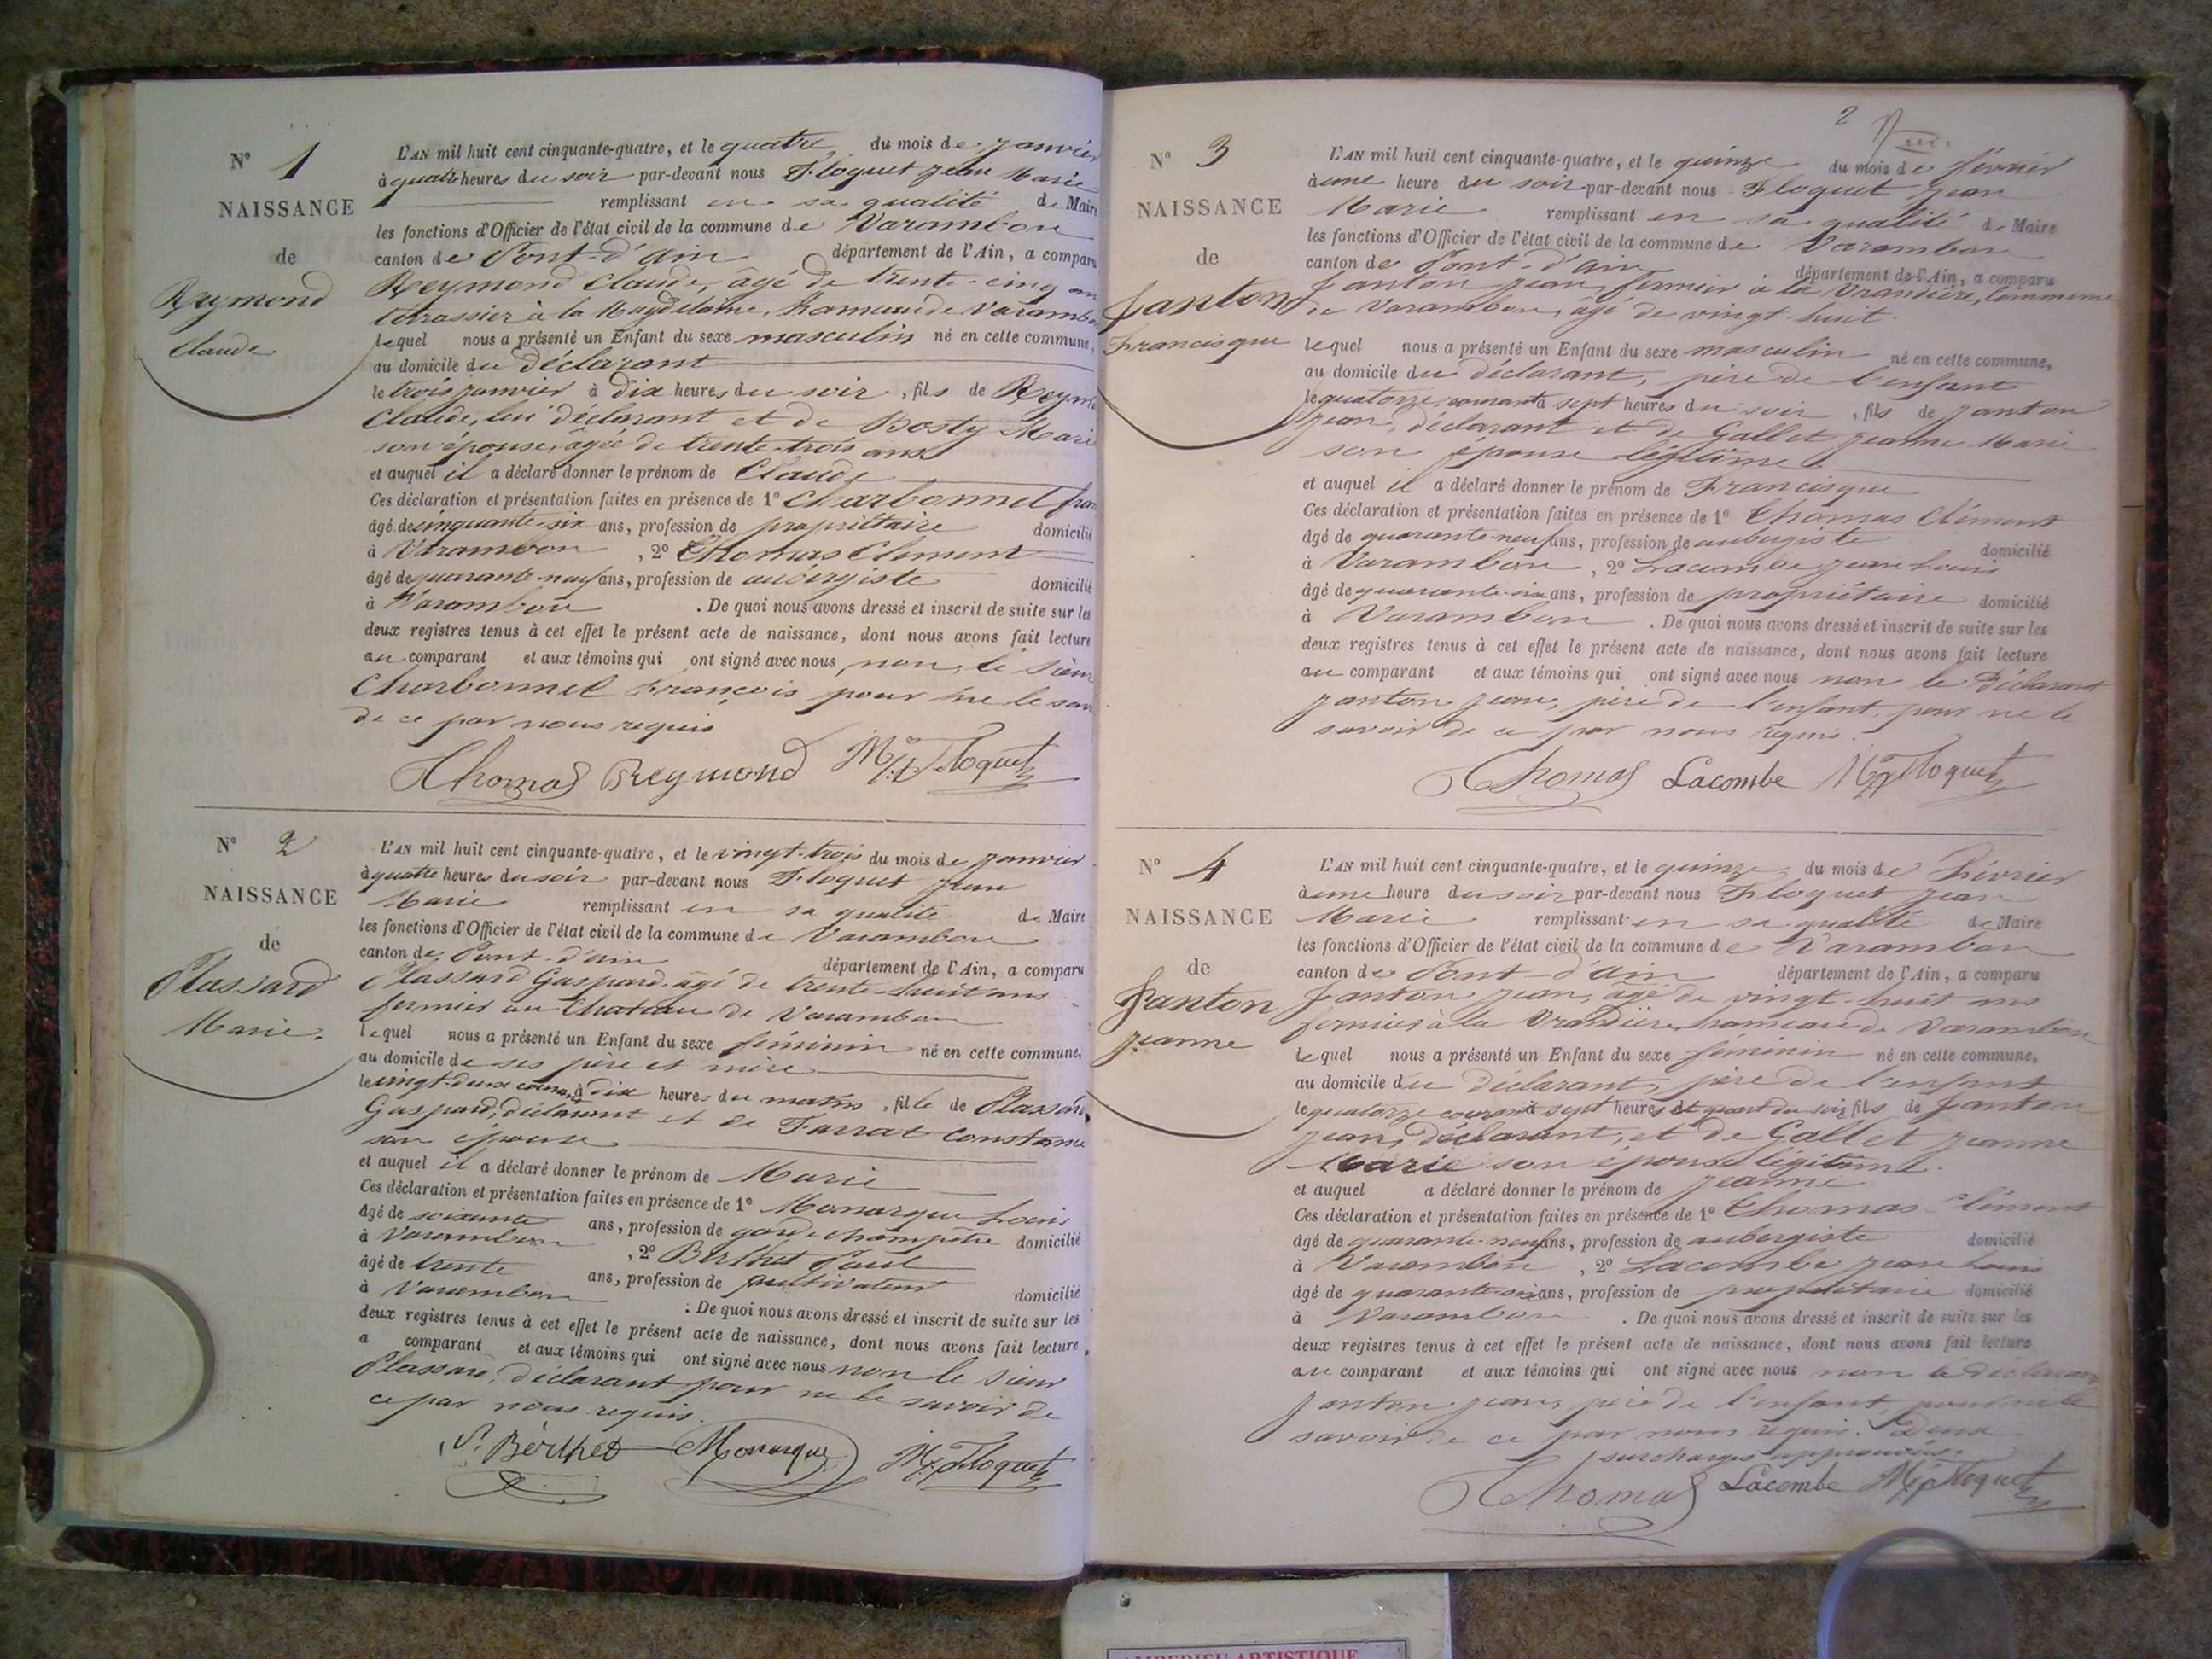 N° 1
NAISSANCE
de
Reymond
Claude
L'AN mil huit cent cinquante-quatre, et le quatre du mois de janvier
à quatre heures du soir par-devant nous Floquet jean Marie
remplissant en sa qualité de Maire
les fonctions d'Officier de l'état civil de la commune de Varambon
canton de Pont-d'ain département de l'Ain, a comparu
Reymond Claude, âgé de trente-cinq an
terrassier à la Magdelaine, hameau de Varambon
lequel nous a présenté un Enfant du sexe masculin né en cette commune,
au domicile du déclarant
le trois janvier à dix heures du soir, fils de Reymo
Claude, lui déclarant et de Bosty Marie
son épouse, agée de trente-trois ans
et auquel il a déclaré donner le prénom de Claude
Ces déclaration et présentation faites en présence de 1° Charbonnel fran
âgé de cinquante-six ans, profession de propriétaire domicilié
à Varambon, 2° Thomas Clement
âgé de quarante-neuf ans, profession de aubergiste domicilié
à Varambon. De quoi nous avons dressé et inscrit de suite sur les
deux registres tenus à cet effet le présent acte de naissance, dont nous avons fait lecture
au comparant et aux témoins qui ont signé avec nous, non, le sieur
Charbonnel François pour ne le sav
de ce par nous requis
Thomas Reymond Floquet
N° 2
NAISSANCE
de
Plassard
Marie.
L'AN mil huit cent cinquante-quatre, et le vingt-trois du mois de janvier
à quatre heures du soir par-devant nous Floquet jean
Marie remplissant en sa qualité de Maire
les fonctions d'Officier de l'état civil de la commune de Varambon
canton de Pont-d'ain département de l'Ain, a comparu
Plassard Gaspard, âgé de trente-huit ans
fermier au Chateau de Varambon
lequel nous a présenté un Enfant du sexe féminin né en cette commune,
au domicile de ses père et mère
le vingt-deux courant à dix heures du matin, fille de Plassard
Gaspard, déclarant et de Farrat Constance
son épouse
et auquel il a déclaré donner le prénom de Marie
Ces déclaration et présentation faites en présence de 1° Monarque Louis
âgé de soixante ans, profession de garde champêtre domicilié
à Varambon, 2° Berthet Paul
âgé de trente ans, profession de cultivateur domicilié
à Varambon. De quoi nous avons dressé et inscrit de suite sur les
deux registres tenus à cet effet le présent acte de naissance, dont nous avons fait lecture
a comparant et aux témoins qui ont signé avec nous non le sieur
Plassard, déclarant pour ne le savoir de
ce par nous requis.
P. Berthet Monarque Floquet
2
N° 3
NAISSANCE
de
Janton
Francisque
L'AN mil huit cent cinquante-quatre, et le quinze du mois de février
à une heure du soir par-devant nous Floquet jean
Marie remplissant en sa qualité de Maire
les fonctions d'Officier de l'état civil de la commune de Varambon
canton de Pont-d'ain département de l'Ain, a comparu
Janton jean, fermier à la Vrandière, Commune
de Varambon, âgé de vingt-huit
lequel nous a présenté un Enfant du sexe masculin né en cette commune,
au domicile du déclarant, père de l'enfant
le quatorze courant à sept heures du soir, fils de janton
jean, déclarant et de Gallet jeanne Marie
son épouse légitime
et auquel il a déclaré donner le prénom de Francisque
Ces déclaration et présentation faites en présence de 1° Thomas Clément
âgé de quarante-neuf ans, profession de aubergiste domicilié
à Varambon, 2° Lacombe jean Louis
âgé de quarante-six ans, profession de propriétaire domicilié
à Varambon. De quoi nous avons dressé et inscrit de suite sur les
deux registres tenus à cet effet le présent acte de naissance, dont nous avons fait lecture
au comparant et aux témoins qui ont signé avec nous non le déclarant
janton jean, père de l'enfant, pour ne le
savoir de ce par nous requis.
Thomas Lacombe Floquet
N° 4
NAISSANCE
de
Janton
jeanne
L'AN mil huit cent cinquante-quatre, et le quinze du mois de Février
à une heure du soir par-devant nous Floquet jean
Marie remplissant en sa qualité de Maire
les fonctions d'Officier de l'état civil de la commune de Varambon
canton de Pont-d'ain département de l'Ain, a comparu
Janton jean, âgé de vingt-huit ans
fermier à la Vrandière, hameau de Varambon
lequel nous a présenté un Enfant du sexe féminin né en cette commune,
au domicile du déclarant, père de l'enfant
le quatorze courant à sept heures et quart du soir, fils de Janton
jean, déclarant, et de Gallet jeanne
Marie son épouse légitime.
et auquel a déclaré donner le prénom de jeanne
Ces déclaration et présentation faites en présence de 1° Thomas Clément
âgé de quarante-neuf ans, profession de aubergiste domicilié
à Varambon, 2° Lacombe jean Louis
âgé de quarante-six ans, profession de propriétaire domicilié
à Varambon. De quoi nous avons dressé et inscrit de suite sur les
deux registres tenus à cet effet le présent acte de naissance, dont nous avons fait lecture
au comparant et aux témoins qui ont signé avec nous non le déclarant
janton jean, père de l'enfant, pour ne le
savoir de ce par nous requis. Deux
surcharges approuvées.
Thomas Lacombe Floquet
AMBERIEU ARTISTIQUE